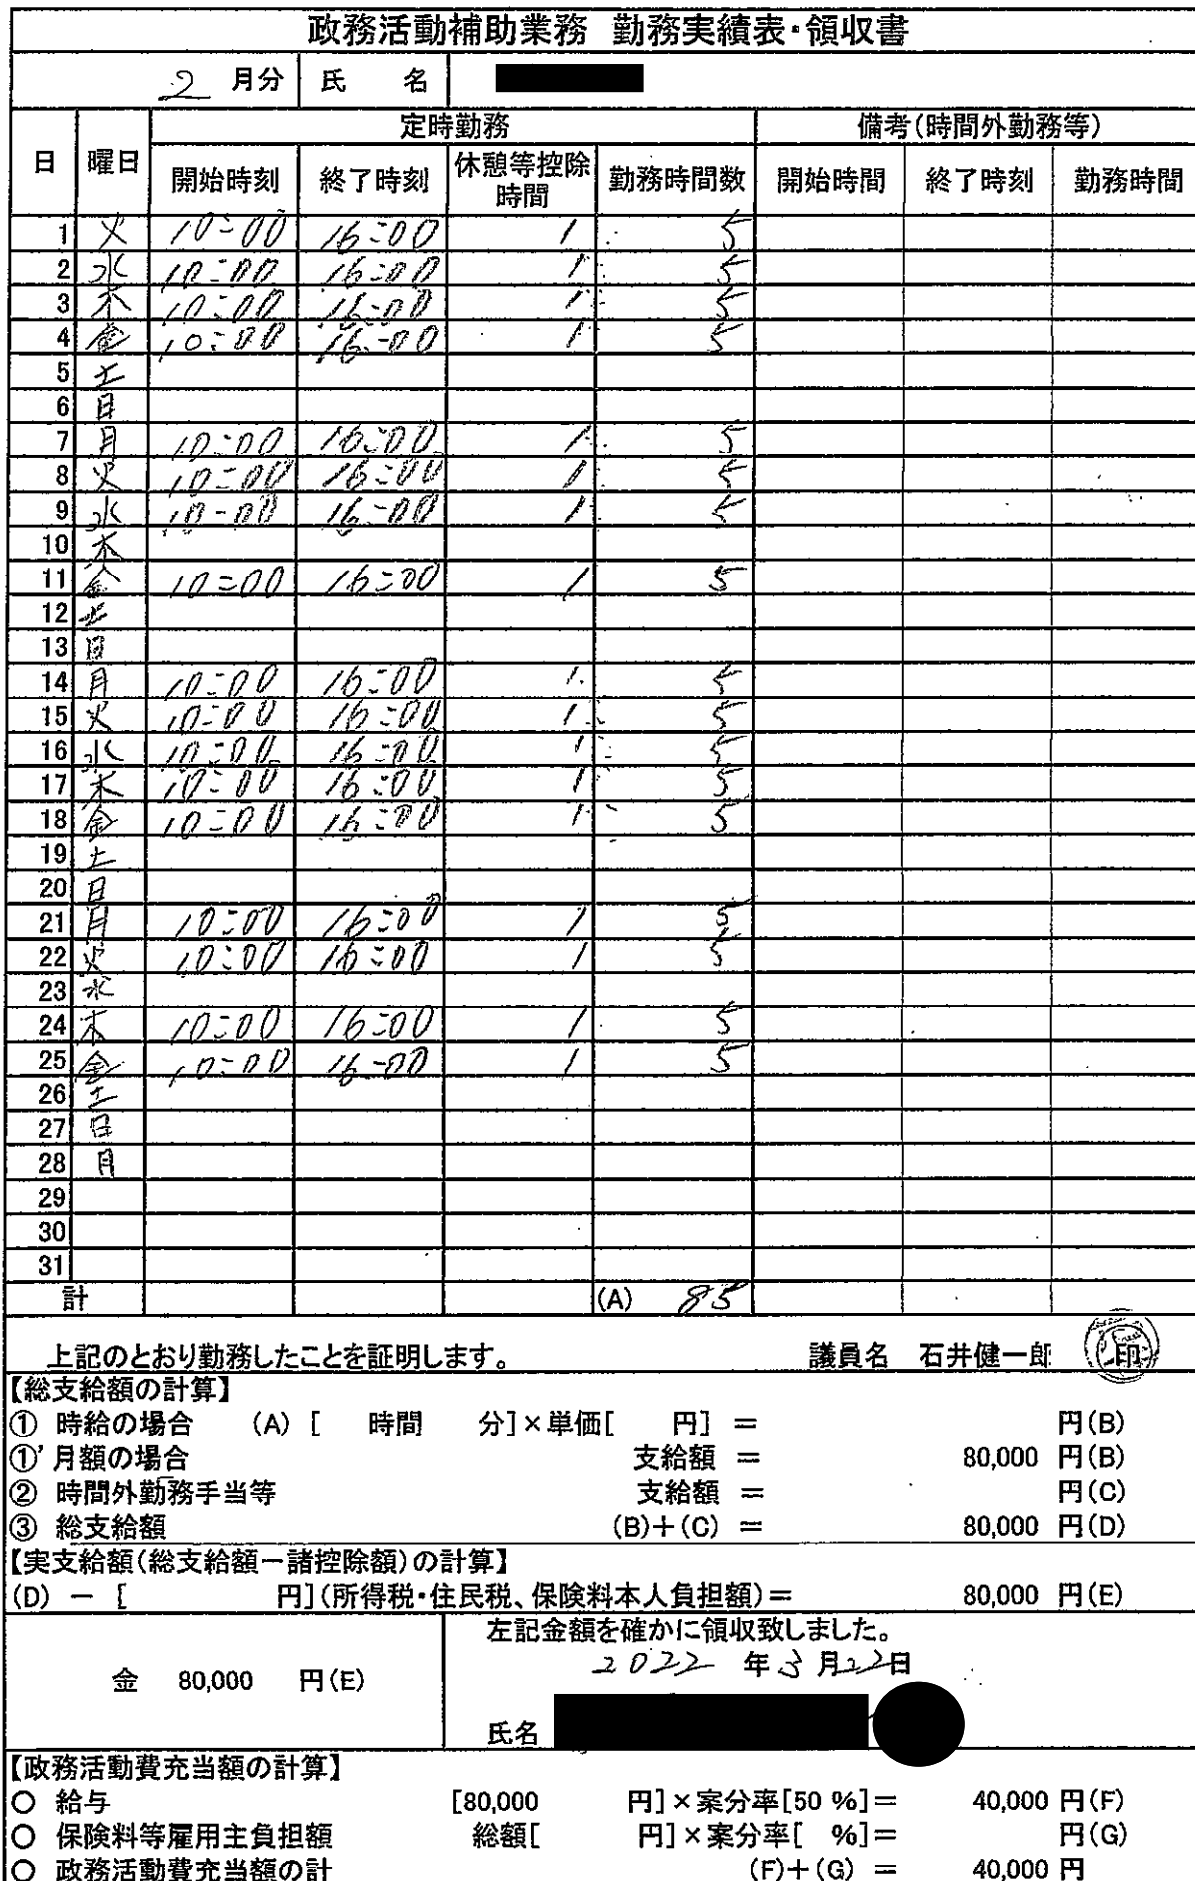 政務活動補助業務 勤務実績表・領収書
2 月分 氏 名
日 曜日 定時勤務 備考(時間外勤務等)
開始時刻 終了時刻 休憩等控除時間 勤務時間数 開始時間 終了時刻 勤務時間
1 火 10:00 16:00 1 5
2 水 10:00 16:00 1 5
3 木 10:00 16:00 1 5
4 金 10:00 16:00 1 5
5 土
6 日
7 月 10:00 16:00 1 5
8 火 10:00 16:00 1 5
9 水 10:00 16:00 1 5
10 木
11 金 10:00 16:00 1 5
12 土
13 日
14 月 10:00 16:00 1 5
15 火 10:00 16:00 1 5
16 水 10:00 16:00 1 5
17 木 10:00 16:00 1 5
18 金 10:00 16:00 1 5
19 土
20 日
21 月 10:00 16:00 1 5
22 火 10:00 16:00 1 5
23 水
24 木 10:00 16:00 1 5
25 金 10:00 16:00 1 5
26 土
27 日
28 月
29
30
31
計 (A) 85
上記のとおり勤務したことを証明します。 議員名 石井健一郎 印
【総支給額の計算】
① 時給の場合 (A) [ 時間 分]×単価[ 円] = 円(B)
①' 月額の場合 支給額 = 80,000 円(B)
② 時間外勤務手当等 支給額 = 円(C)
③ 総支給額 (B)+(C) = 80,000 円(D)
【実支給額(総支給額-諸控除額)の計算】
(D) - [ 円](所得税・住民税、保険料本人負担額)= 80,000 円(E)
左記金額を確かに領収致しました。
2022 年 3 月22日
金 80,000 円(E)
氏名
【政務活動費充当額の計算】
○ 給与 [80,000 円]×案分率[50 %]= 40,000 円(F)
○ 保険料等雇用主負担額 総額[ 円]×案分率[ %]= 円(G)
○ 政務活動費充当額の計 (F)+(G) = 40,000 円